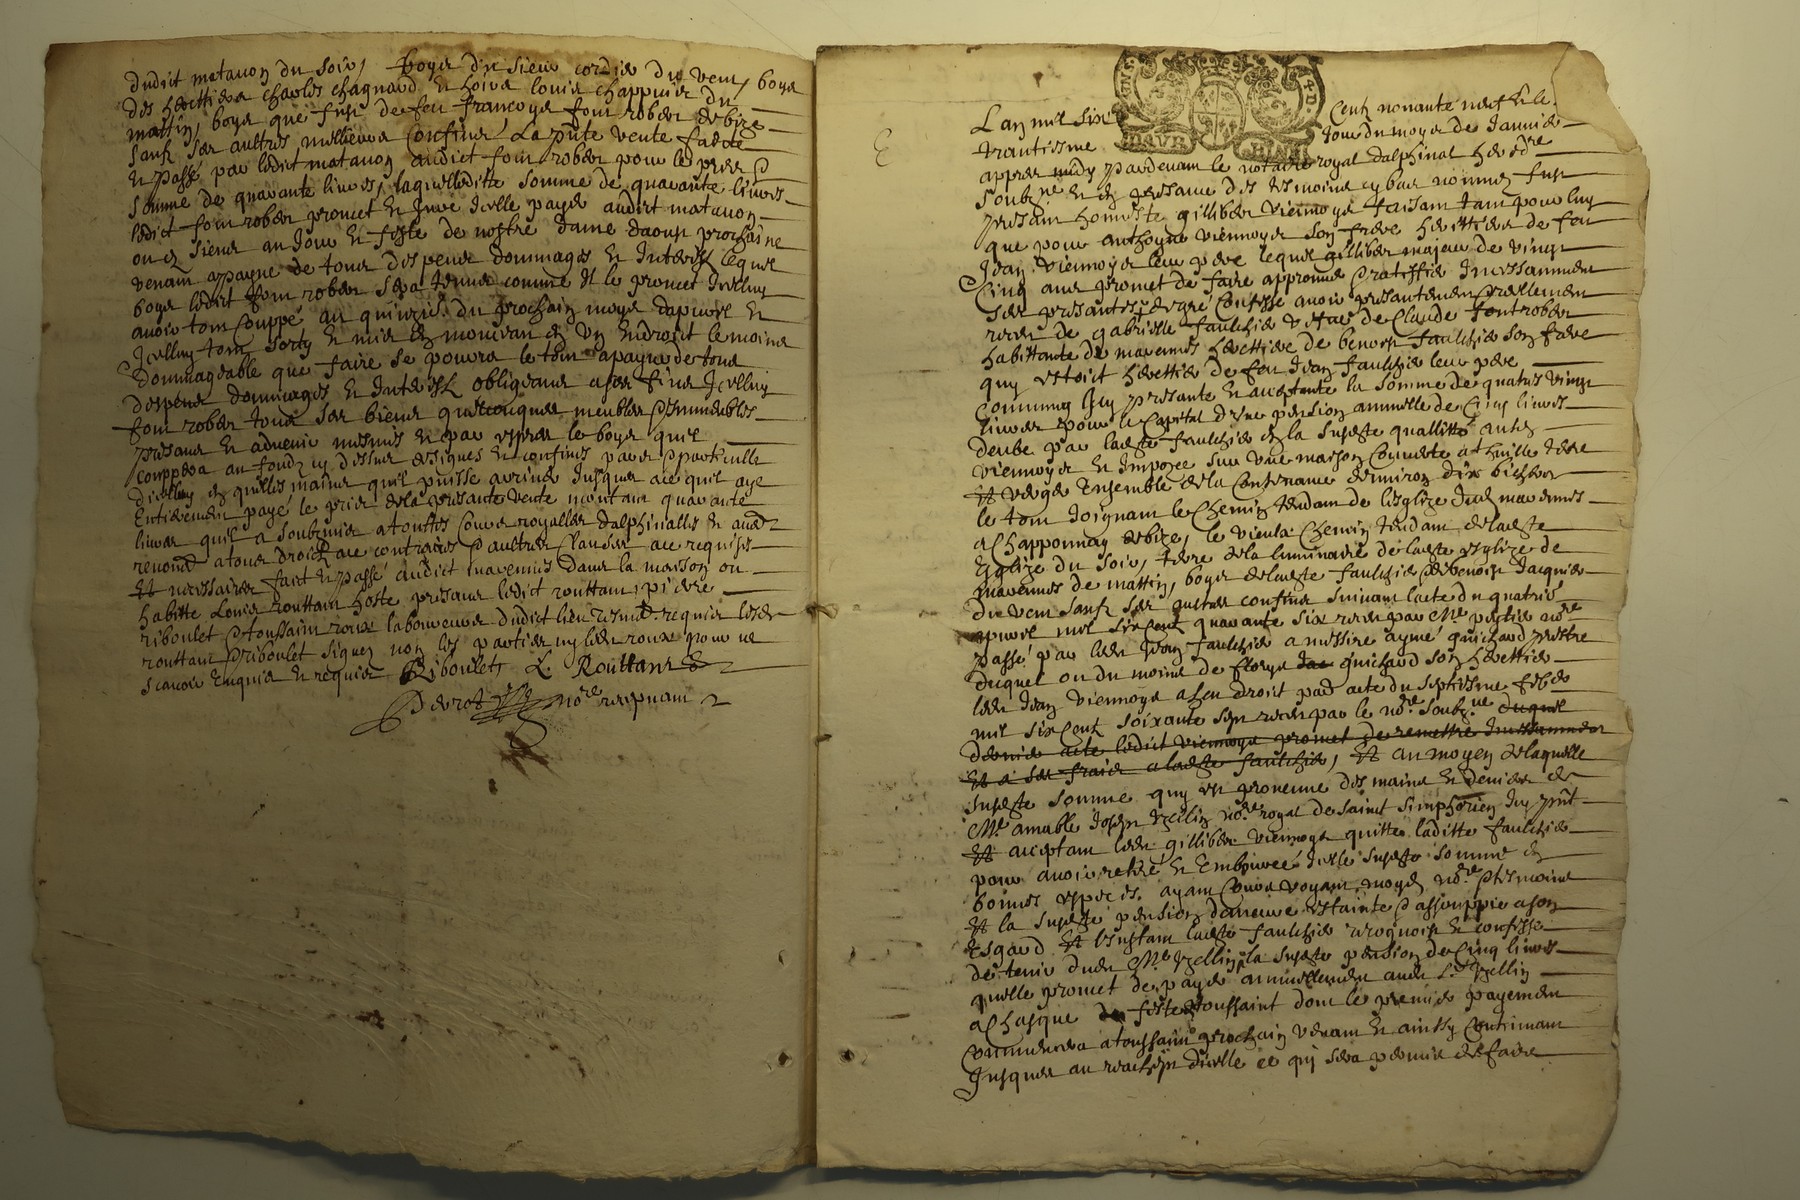 dudict matauon du soir, boys du sieur cordier du vent, boys
des herettiers charles chagnard et hoirs louis chappuier du
mattin, boys que fust de feu francoys font rober de bize
sauf ses autres meilleurs confins La dite vente faicte
et passé par ledict matauon audict font rober pour le prix et
somme de quarante livres, laquelleditte somme de quarante livres
ledict font rober promet et jure icelle payer audict matauon
ou es siens au jour et feste de nostre dame daoust prochaine
venant a payne de tous despens dommages et interestz lequel
boys ledict font rober sera tenu comme il le promet icelluy
avoir tout couppé au quinzie. du prochain moys dapvril et
icelluy tout sorty et mis en monceau en un endroit le moins
dommageable que faire se pourra le tout a payne de tous
despens dommages et interestz obligeant a ses fins icelluy
font rober tous ses biens quelconques meubles et immeubles
presens et advenir mesmes et par exprès le boys quil
couppera au fondz cy dessus designés et confinés par especialle
dicelluy en quelles mains quil puisse arriver jusques a ce quil aye
entierement payé le prix de la presante vente montant quarante
livres quil a soubzmis a touttes cours royalles dalphinalles et aud.
renoncé a tous droictz a ce contraires et aultres clauses a ce requises
et necessaires faict et passé audict mavennes dans la maison ou
habitte Louis routtant hoste presant ledict routtant, pierre
riboulet et toussaint roux laboureurs dudict lieu tesmo. requis lesd.
routtant et riboulet signez non les parties ny led. roux pour ne
scavoir enquis et requis Riboulet L. Routtant
not.re recepvant
L'an mil six Cent nonante neuf et le
trantiesme jour du moys de janvier
appres midy pardevant le notaire royal dalphinal hered.re
soubz.ne et en presance des tesmoins cy bas nommez fust
presant honneste gillibert viennoys faisant tant pour luy
que pour anthoyne viennoys son frere herittiers de feu
jean viennoys leur pere lequel gillibert majeur de vingt
cinq ans promet de faire approuver et ratiffier incessamment
ses presantes, de gré confesse avoir presantement et reellement
receu de gabrielle faulchier vefve de Claude font rober
habittante de mavennes herettiere de benoist faulchier son frere
quy estoit herettier de feu jean faulchier leur pere
commung icy presante et acceptante la somme de quatre vingt
livres pour le capital d'une pension annuelle de cinq livres
deube par ladite faulchier en la susdite quallitté ausd.
viennoys et imposee sur une maison couverte a thuille terre
et verger ensemble de la contenance denviron dix bicheres
le tout joignant le chemin tendant de lesglize dud. mavennes
a Chapponnay de bize, le vieux chemin tendant de ladite
esglize du soir, terre de la luminaire de ladite esglize de
mavennes de mattin, boys de ladite faulchier et de benoist jacquier
du vent sauf ses autres confins suivant lacte du quatrie.
apvril mil six cent quarante six receu par M.e not.re
passé par led. jean faulchier a messire aymé guichard prestre
duquel ou du moins de floryx guichard son herettier
led. jean viennoys a heu droit par acte du septiesme febvr.
mil six cent soixante sept receu par le not.re soubz.ne duquel
dernier acte ledict viennoys promet de remettre incessamment
et a ses fraix a ladite faulchier, et au moyen de laquelle
susdite somme quy est provenue des mains et deniers de
M.e amable joseph not.re royal de saint simphorien icy p.nt
et acceptant led. gillibert viennoys quitte laditte faulchier
pour avoir retiré et emboursé icelle susdite somme en
bonnes especes. ayant cours voyant moyd. not.re et tesmoins
et la susdite pension demeure estainte et assouppie a son
esgard et a l'instant ladite faulchier recognoist et confesse
de tenir dud. M.e la susdite pension de cinq livres
quelle promet de payer annuellement aud. s.r
a chasque feste toussaint dont le premier payement
commencera a toussaint prochain venant et ainssy continuant
jusques au rachept dicelle ce quy sera permis de faire